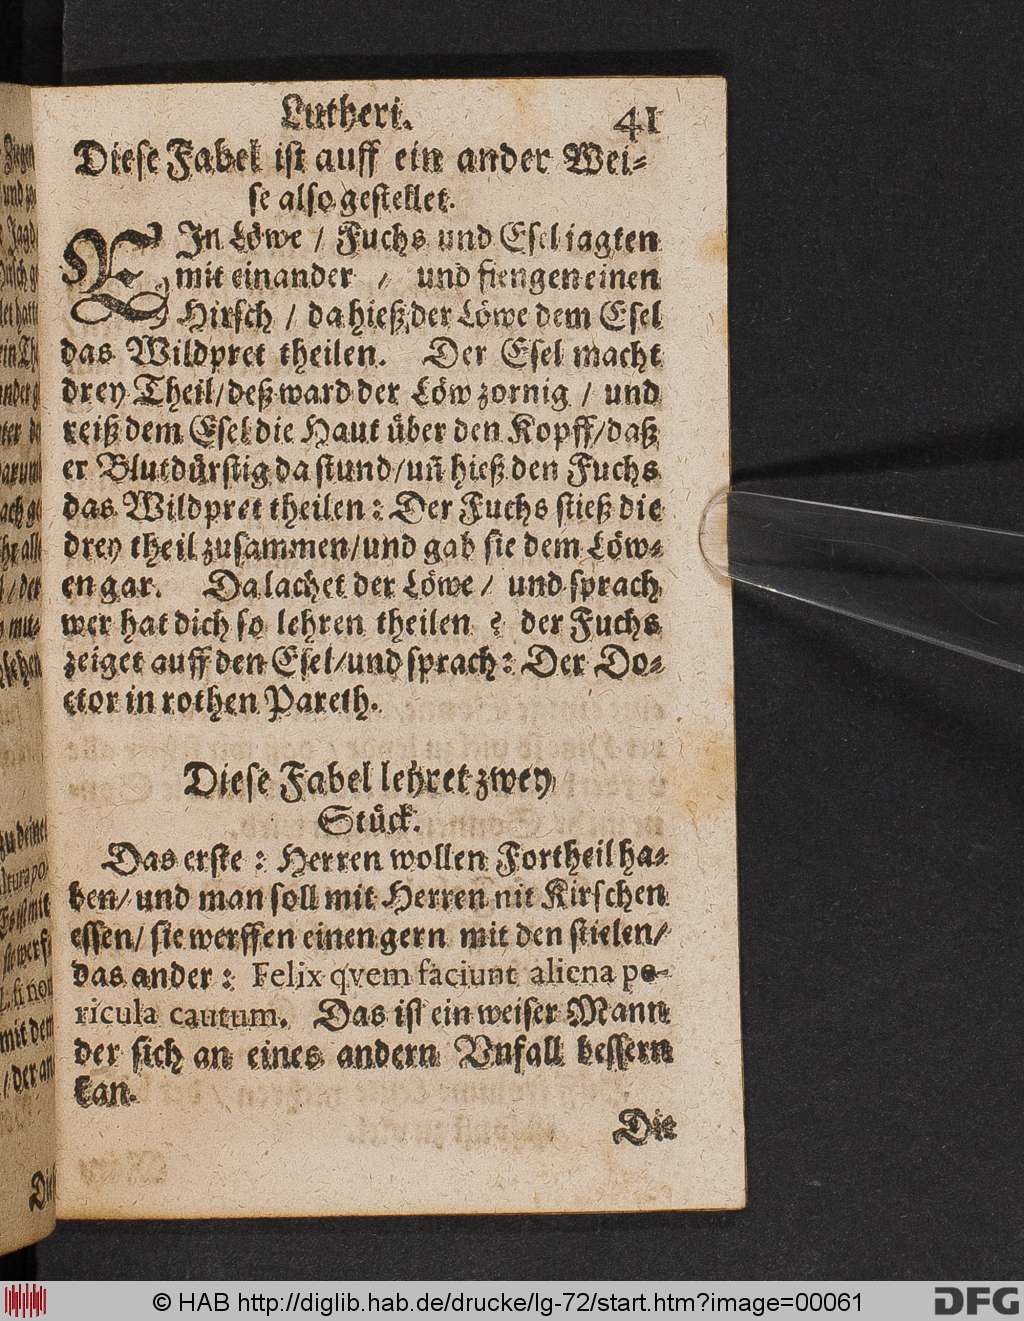 Lutheri. 41
Diese Fabel ist auff ein ander Wei-
se also gestellet.
EIn Löwe / Fuchs und Esel jagten
mit einander / und fiengen einen
Hirsch / da hieß der Löwe dem Esel
das Wildpret theilen. Der Esel macht
drey Theil/deß ward der Löw zornig / und
reiß dem Esel die Haut über den Kopff/daß
er Blutdürstig da stund/uñ hieß den Fuchs
das Wildpret theilen: Der Fuchs stieß die
drey theil zusammen/und gab sie dem Löw-
en gar. Da lachet der Löwe / und sprach
wer hat dich so lehren theilen ? der Fuchs
zeiget auff den Esel/und sprach: Der Do-
ctor in rothen Pareth.
Diese Fabel lehret zwey
Stück.
Das erste : Herren wollen Fortheil ha-
ben/ und man soll mit Herren nit Kirschen
essen/ sie werffen einen gern mit den stielen/
das ander : Felix qvem faciunt aliena pe-
ricula cautum. Das ist ein weiser Mann
der sich an eines andern Vnfall bessern
kan.
Die
© HAB http://diglib.hab.de/drucke/lg-72/start.htm?image=00061
DFG